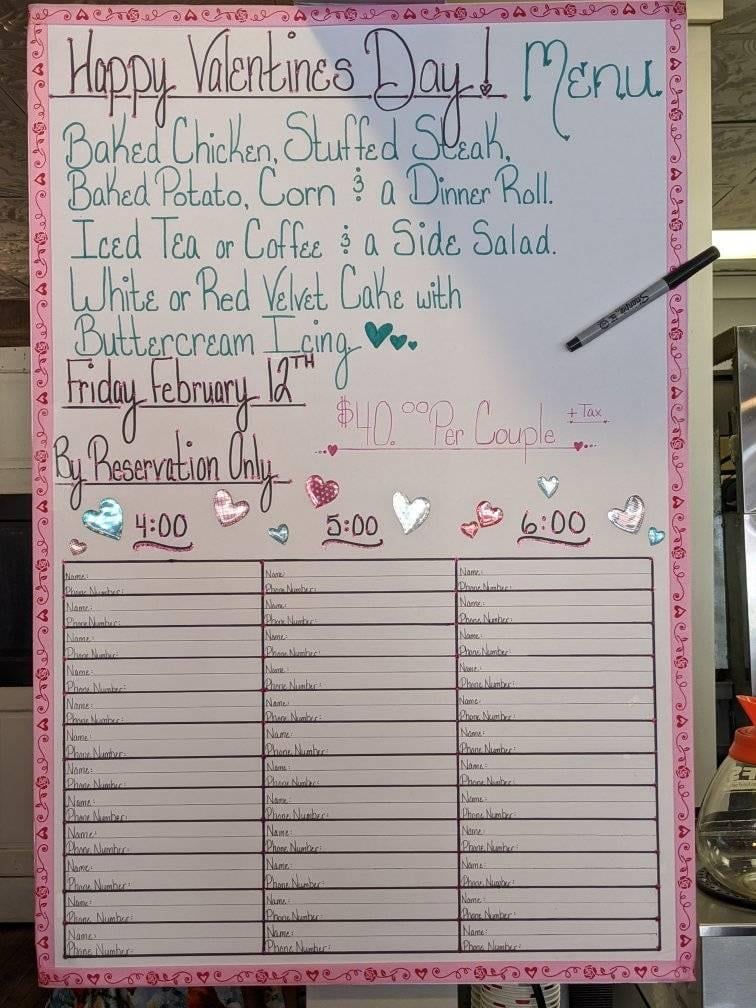 Happy Valentines Day! Menu
Baked Chicken, Stuffed Steak,
Baked Potato, Corn & a Dinner Roll.
Iced Tea or Coffee & a Side Salad.
White or Red Velvet Cake with
Buttercream Icing
Friday February 12TH
$40.00 Per Couple + Tax
By Reservation Only
4:00 5:00 6:00
Name: Name: Name:
Phone Number: Phone Number: Phone Number:
Name: Name: Name:
Phone Number: Phone Number: Phone Number:
Name: Name: Name:
Phone Number: Phone Number: Phone Number:
Name: Name: Name:
Phone Number: Phone Number: Phone Number:
Name: Name: Name:
Phone Number: Phone Number: Phone Number:
Name: Name: Name:
Phone Number: Phone Number: Phone Number:
Name: Name: Name:
Phone Number: Phone Number: Phone Number:
Name: Name: Name:
Phone Number: Phone Number: Phone Number:
Name: Name: Name:
Phone Number: Phone Number: Phone Number:
Name: Name: Name:
Phone Number: Phone Number: Phone Number:
Name: Name: Name:
Phone Number: Phone Number: Phone Number:
Name: Name: Name:
Phone Number: Phone Number: Phone Number:
Sharpie